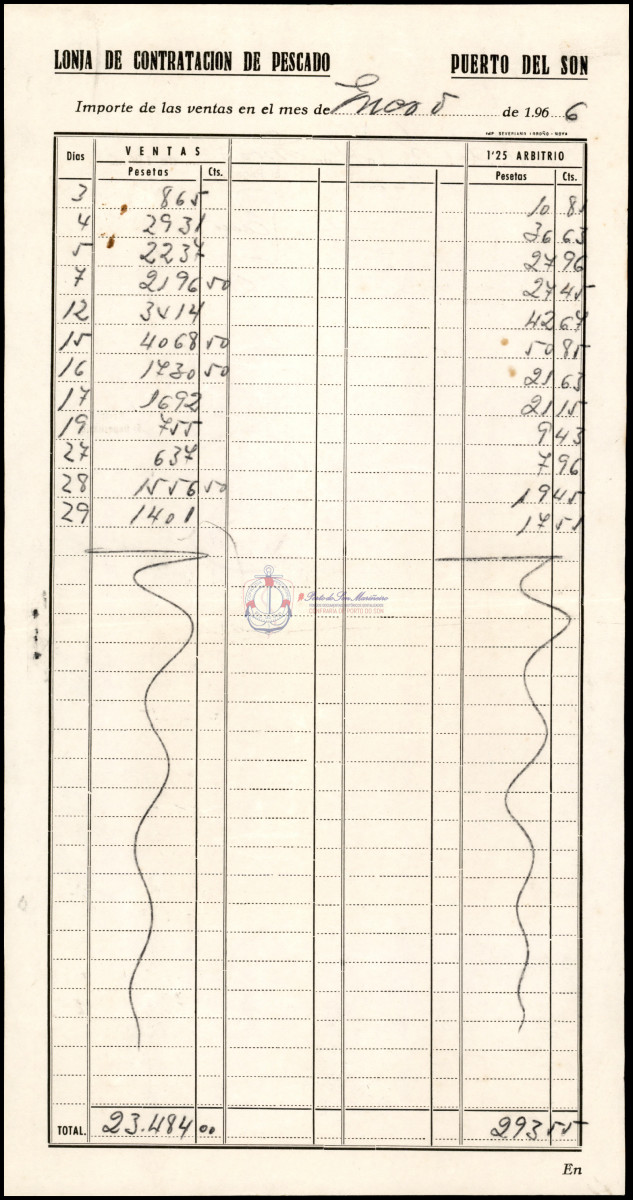 LONJA DE CONTRATACION DE PESCADO PUERTO DEL SON
Importe de las ventas en el mes de Enero de 1.96 6
Dias VENTAS 1'25 ARBITRIO
Pesetas Cts. Pesetas Cts.
3 865 10 81
4 2931 36 63
5 2237 27 96
7 2196 50 27 45
12 3414 42 67
15 4068 50 50 85
16 1730 50 21 63
17 1692 21 15
19 755 9 43
27 637 7 96
28 1556 50 19 45
29 1401 17 51
Porto do Son Mariñeiro
COFRARÍA DE PORTO DO SON
TOTAL. 23.484 00 293 55
En